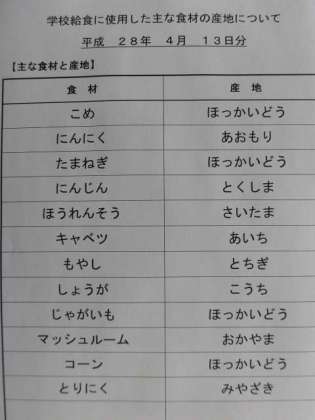 学校給食に使用した主な食材の産地について
平成 28年 4月 13日分
【主な食材と産地】
食 材 産 地
こめ ほっかいどう
にんにく あおもり
たまねぎ ほっかいどう
にんじん とくしま
ほうれんそう さいたま
キャベツ あいち
もやし とちぎ
しょうが こうち
じゃがいも ほっかいどう
マッシュルーム おかやま
コーン ほっかいどう
とりにく みやざき